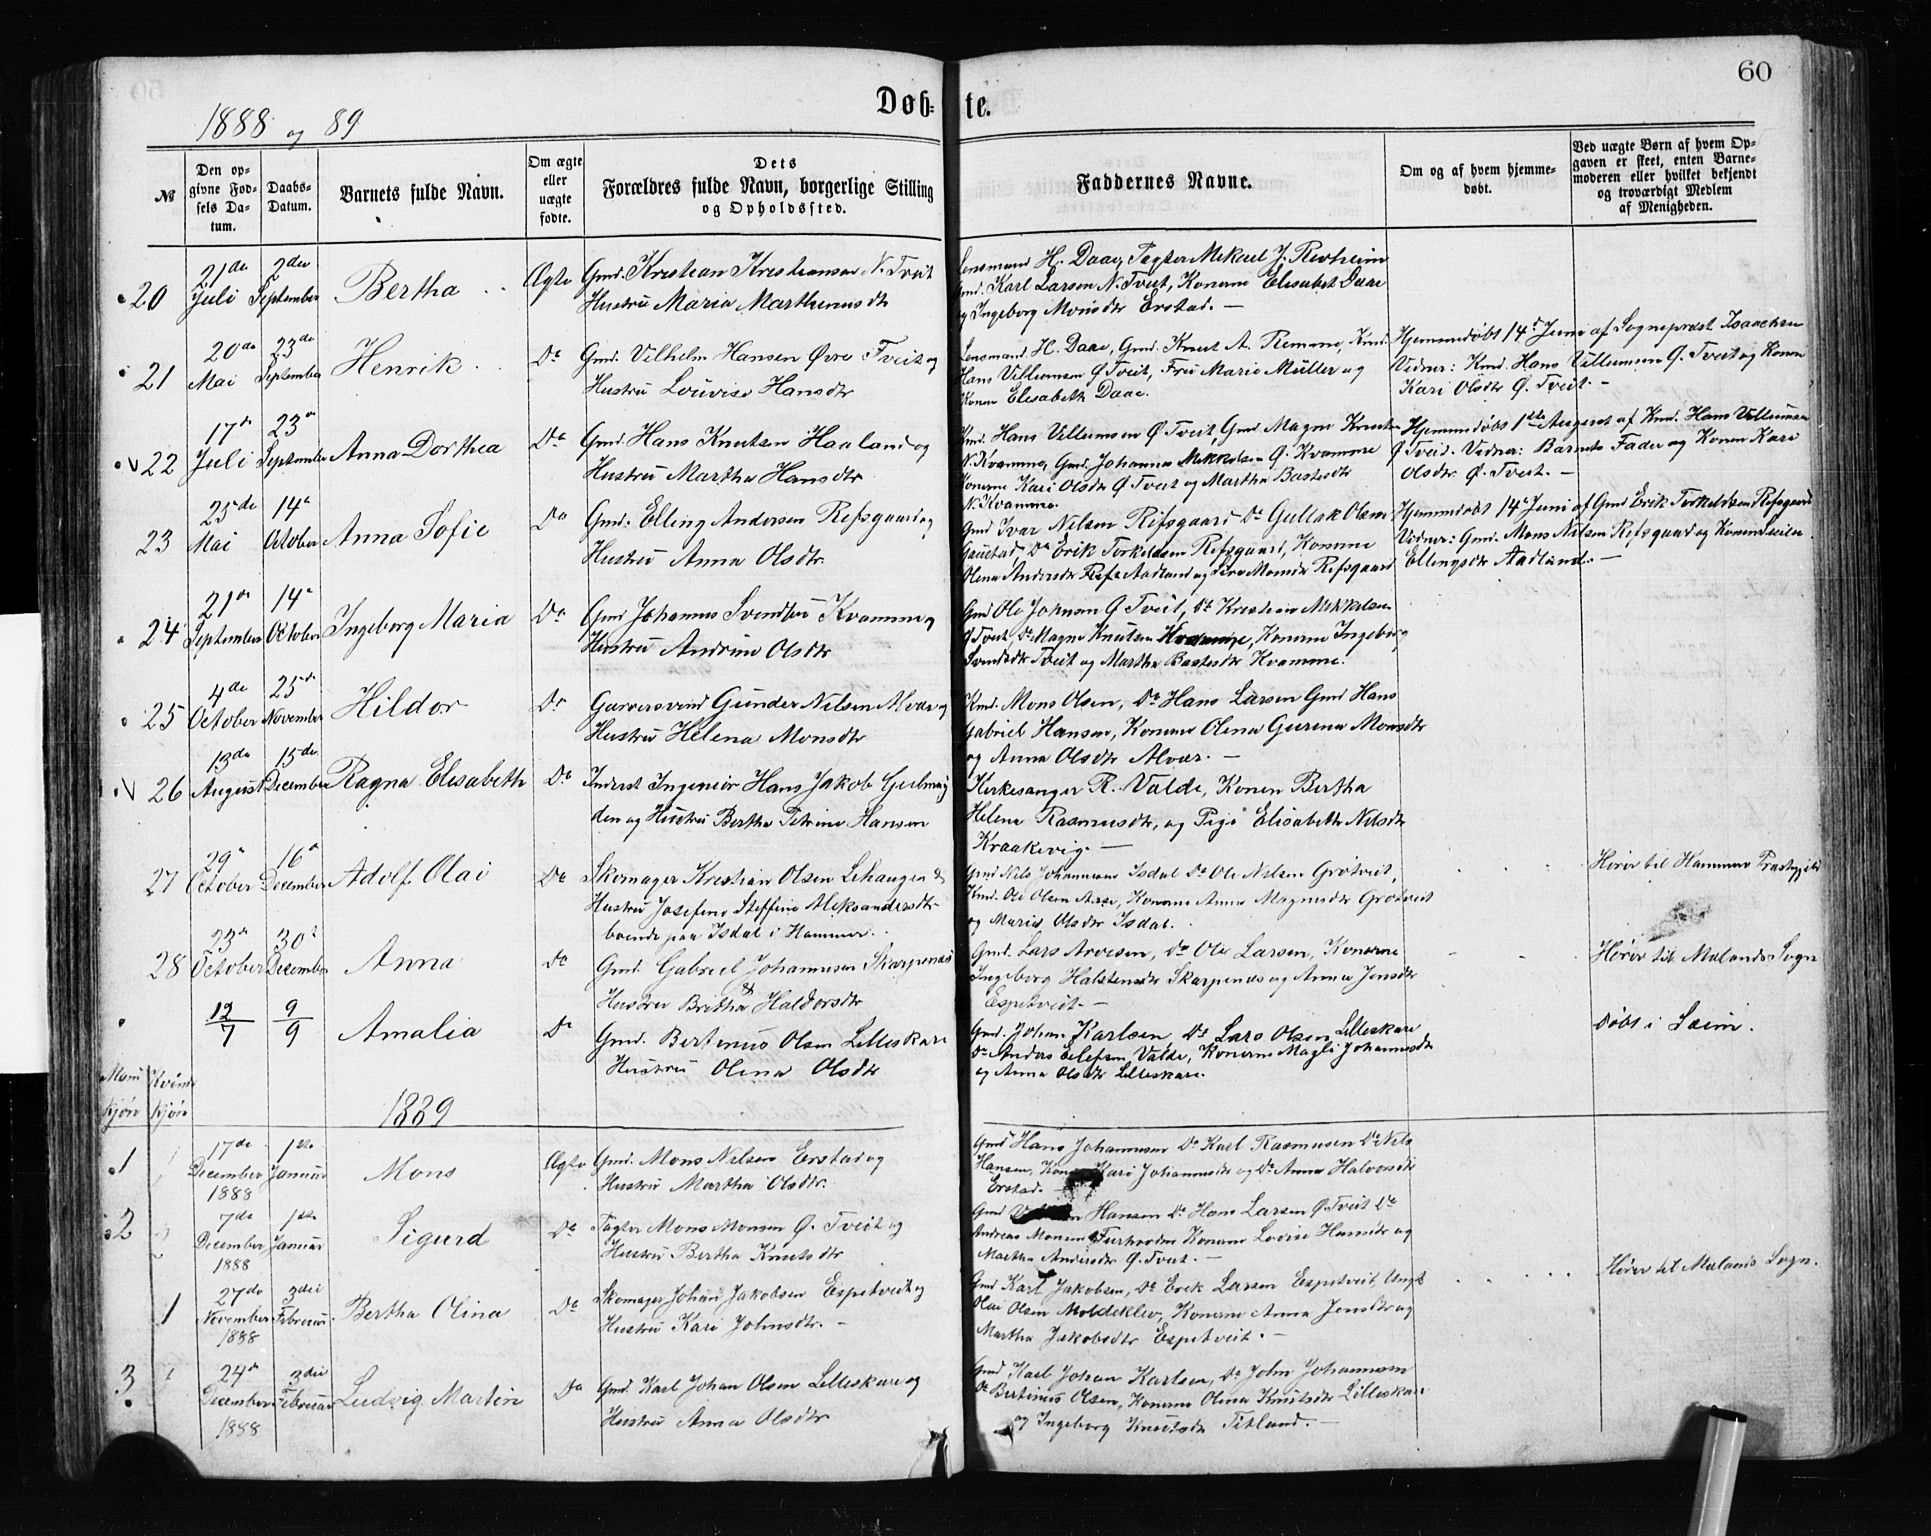 60
Døb- te.
1888 og 89
№
Den op-
givne Fød-
sels Da-
tum.
Daabs-
Datum.
Barnets fulde Navn.
Om ægte
eller
uægte
fødte.
Dets
Forældres fulde Navn, borgerlige Stilling
og Opholdssted.
Faddernes Navne.
Om og af hvem hjemme-
døbt.
Ved uægte Børn af hvem Op-
gaven er skeet, enten Barne-
moderen eller hvilket bekjendt
og troværdigt Medlem
af Menigheden.
20
21de Juli
2den September
Bertha
Ægte
Gmd. Kristian Kristiansen N. Tveit
Hustru Maria Marthinusdtr
Lensmand H. Daae, Mikal J. Revheim
Gmd. Karl Larsen N. Tveit, Konerne Elisabet Daae
og Ingeborg Monsdtr Erstad.
21
20de Mai
23de September
Henrik
Do
Gmd. Vilhelm Hansen Øvre Tveit og
Hustru Lovise Hansdtr
Lensmand H. Daae, Gmd. Knut A. Remme, Kmd.
Hans Villumsen Ø Tveit, Fru Marie Müller og
Konen Elisabeth Daae.
Hjemmedøbt 14de Juni af Sogneprest Isaachsen
Vidner: Kmd. Hans Villumsen Ø. Tveit og Konen
Kari Olsdtr Ø. Tveit. -
22
17de Juli
23 September
Anna Dorthea
Do
Gmd. Hans Knutsen Haaland og
Hustru Martha Hansdtr
Kmd. Hans Villumsen Ø Tveit, Gmd Magne Knutsen
N. Kvamme, Gmd. Johannes Mikkelsen Ø. Kvamme
Konerne Kari Olsdtr Ø Tveit og Martha Bastesdtr
N. Kvamme.
Hjemmedøbt 1ste August af Kmd. Hans Villumsen
Ø Tveit. Vidner: Barnets Fader og Konen Kari
Olsdtr Ø. Tveit. -
23
25de Mai
14de October
Anna Sofie
Do
Gmd. Elling Andersen Refsgaard og
Hustru Anna Olsdtr.
Gmd Ivar Nilsen Refsgaard Do Gullak Olsen
Gaustad, Do Erik Torkeldsen Refsgaard, Konerne
Olena Andersdtr Aadland og Monsdtr Refsgaard
Hjemmedøbt 14de Juni af Gmd Erik Torkeldsen Refsgaard
Vidner: Gmd. Mons Nilsen Refsgaard og Konen
Ellingsdtr Aadland. -
24
21de September
14de October
Ingeborg Maria
Do
Gmd Johannes Svendsen Kvamme og
Hustru Andrine Olsdtr
Gmd Ole Johnsen Ø Tveit, Do Kristian Mikkelsen
Ø Tveit Do Magne Knutsen Kvamme, Konerne Ingeborg
Svendsdtr Tveit og Martha Bastesdtr Kvamme.
25
4de October
25de November
Hildor
Do
Garversvend Gunder Nilsen Alvær og
Hustru Helena Monsdtr
Kmd. Mons Olsen, Do Hans Larsen Gmd Hans
Gabriel Hansen, Konerne Olena Gurena Monsdtr
og Anna Olsdtr Alvær. -
26
13de August
15de December
Ragna Elisabeth
Do
Inderst Ingeniør Hans Jakob
og Hustru Bertha Petrine Hansen
Kirkesanger R. Valde, Konen Bertha
Helena Rasmusdtr, og Pige Elisabeth Nilsdtr
Kraakevig. -
27
29de October
16de December
Adolf Olai
Do
Skomager Kristian Olsen Lihaugen &
Hustru Josefine Steffine Aleksandersdtr
boende paa Isdal i Hammer.
Gmd Nils Johannesen Isdal Do Ole Nilsen Grøtveit,
Kmd. Ole Olsen, Konerne Anna Magnesdtr Grøtveit
og Marie Olsdtr Isdal.
Hører til Hammer Prestegjeld
28
23de October
30te December
Anna
Do
Gmd. Gabriel Johannesen Skarpenes
& Hustru Britha Haldorsdtr
Gmd. Lars Arvesen, Do Ole Larsen, Konerne
Ingeborg Halstensdtr Skarpenes og Anna Jensdtr
Espetveit. -
Hører til Mælands Sogn
12/7
9/9
Amalia
Do
Gmd. Bertinus Olsen Lilleskare
Hustru Olina Olsdtr
Gmd. Johan Karlsen, Do Lars Olsen Lilleskare
Do Anders Valde, Konerne Magli Johannesdtr
og Anna Olsdtr Lilleskare.
døbt i Sæim.
Mand Kvinde
kjøn kjøn
1889
1
17de December 1888
1ste Januar
Mons
Ægte
Gmd. Mons Nilsen Erstad og
Hustru Martha Olsdtr.
Gmd Hans Johannesen Do Karl Rasmusen Do Nils
Hansen, Kari Johannesdtr og Do Anna Halvorsdtr
Erstad.
2
7de December 1888
1ste Januar
Sigurd
Do
Mons Monsen Ø. Tveit og
Hustru Bertha Knutsdtr
Gmd Hansen Do Hans Larsen Ø. Tveit Do
Andreas Monsen Konerne Lovise Hansdtr og
Martha Andersdtr Ø. Tveit. -
1
27de November 1888
3die Februar
Bertha Olina
Do
Skomager Johan Jakobsen Espetveit og
Hustru Kari Johnsdtr. -
Gmd Karl Jakobsen, Do Erik Larsen Espetveit Ungk
Olai Olsen Moldeklev, Konerne Anna Jensdtr og
Martha Jakobsdtr Espetveit. -
Hører til Mælands Sogn.
3
24de December 1888
3die Februar
Ludvig Martin
Do
Gmd. Karl Johan Olsen Lilleskare og
Hustru Anna Olsdtr
Gmd Karl Johan Karlsen, Do John Johannesen
Do Bertinus Olsen, Konerne Olina Knutsdtr Lilleskare
og Ingeborg Knutsdtr Titland. -